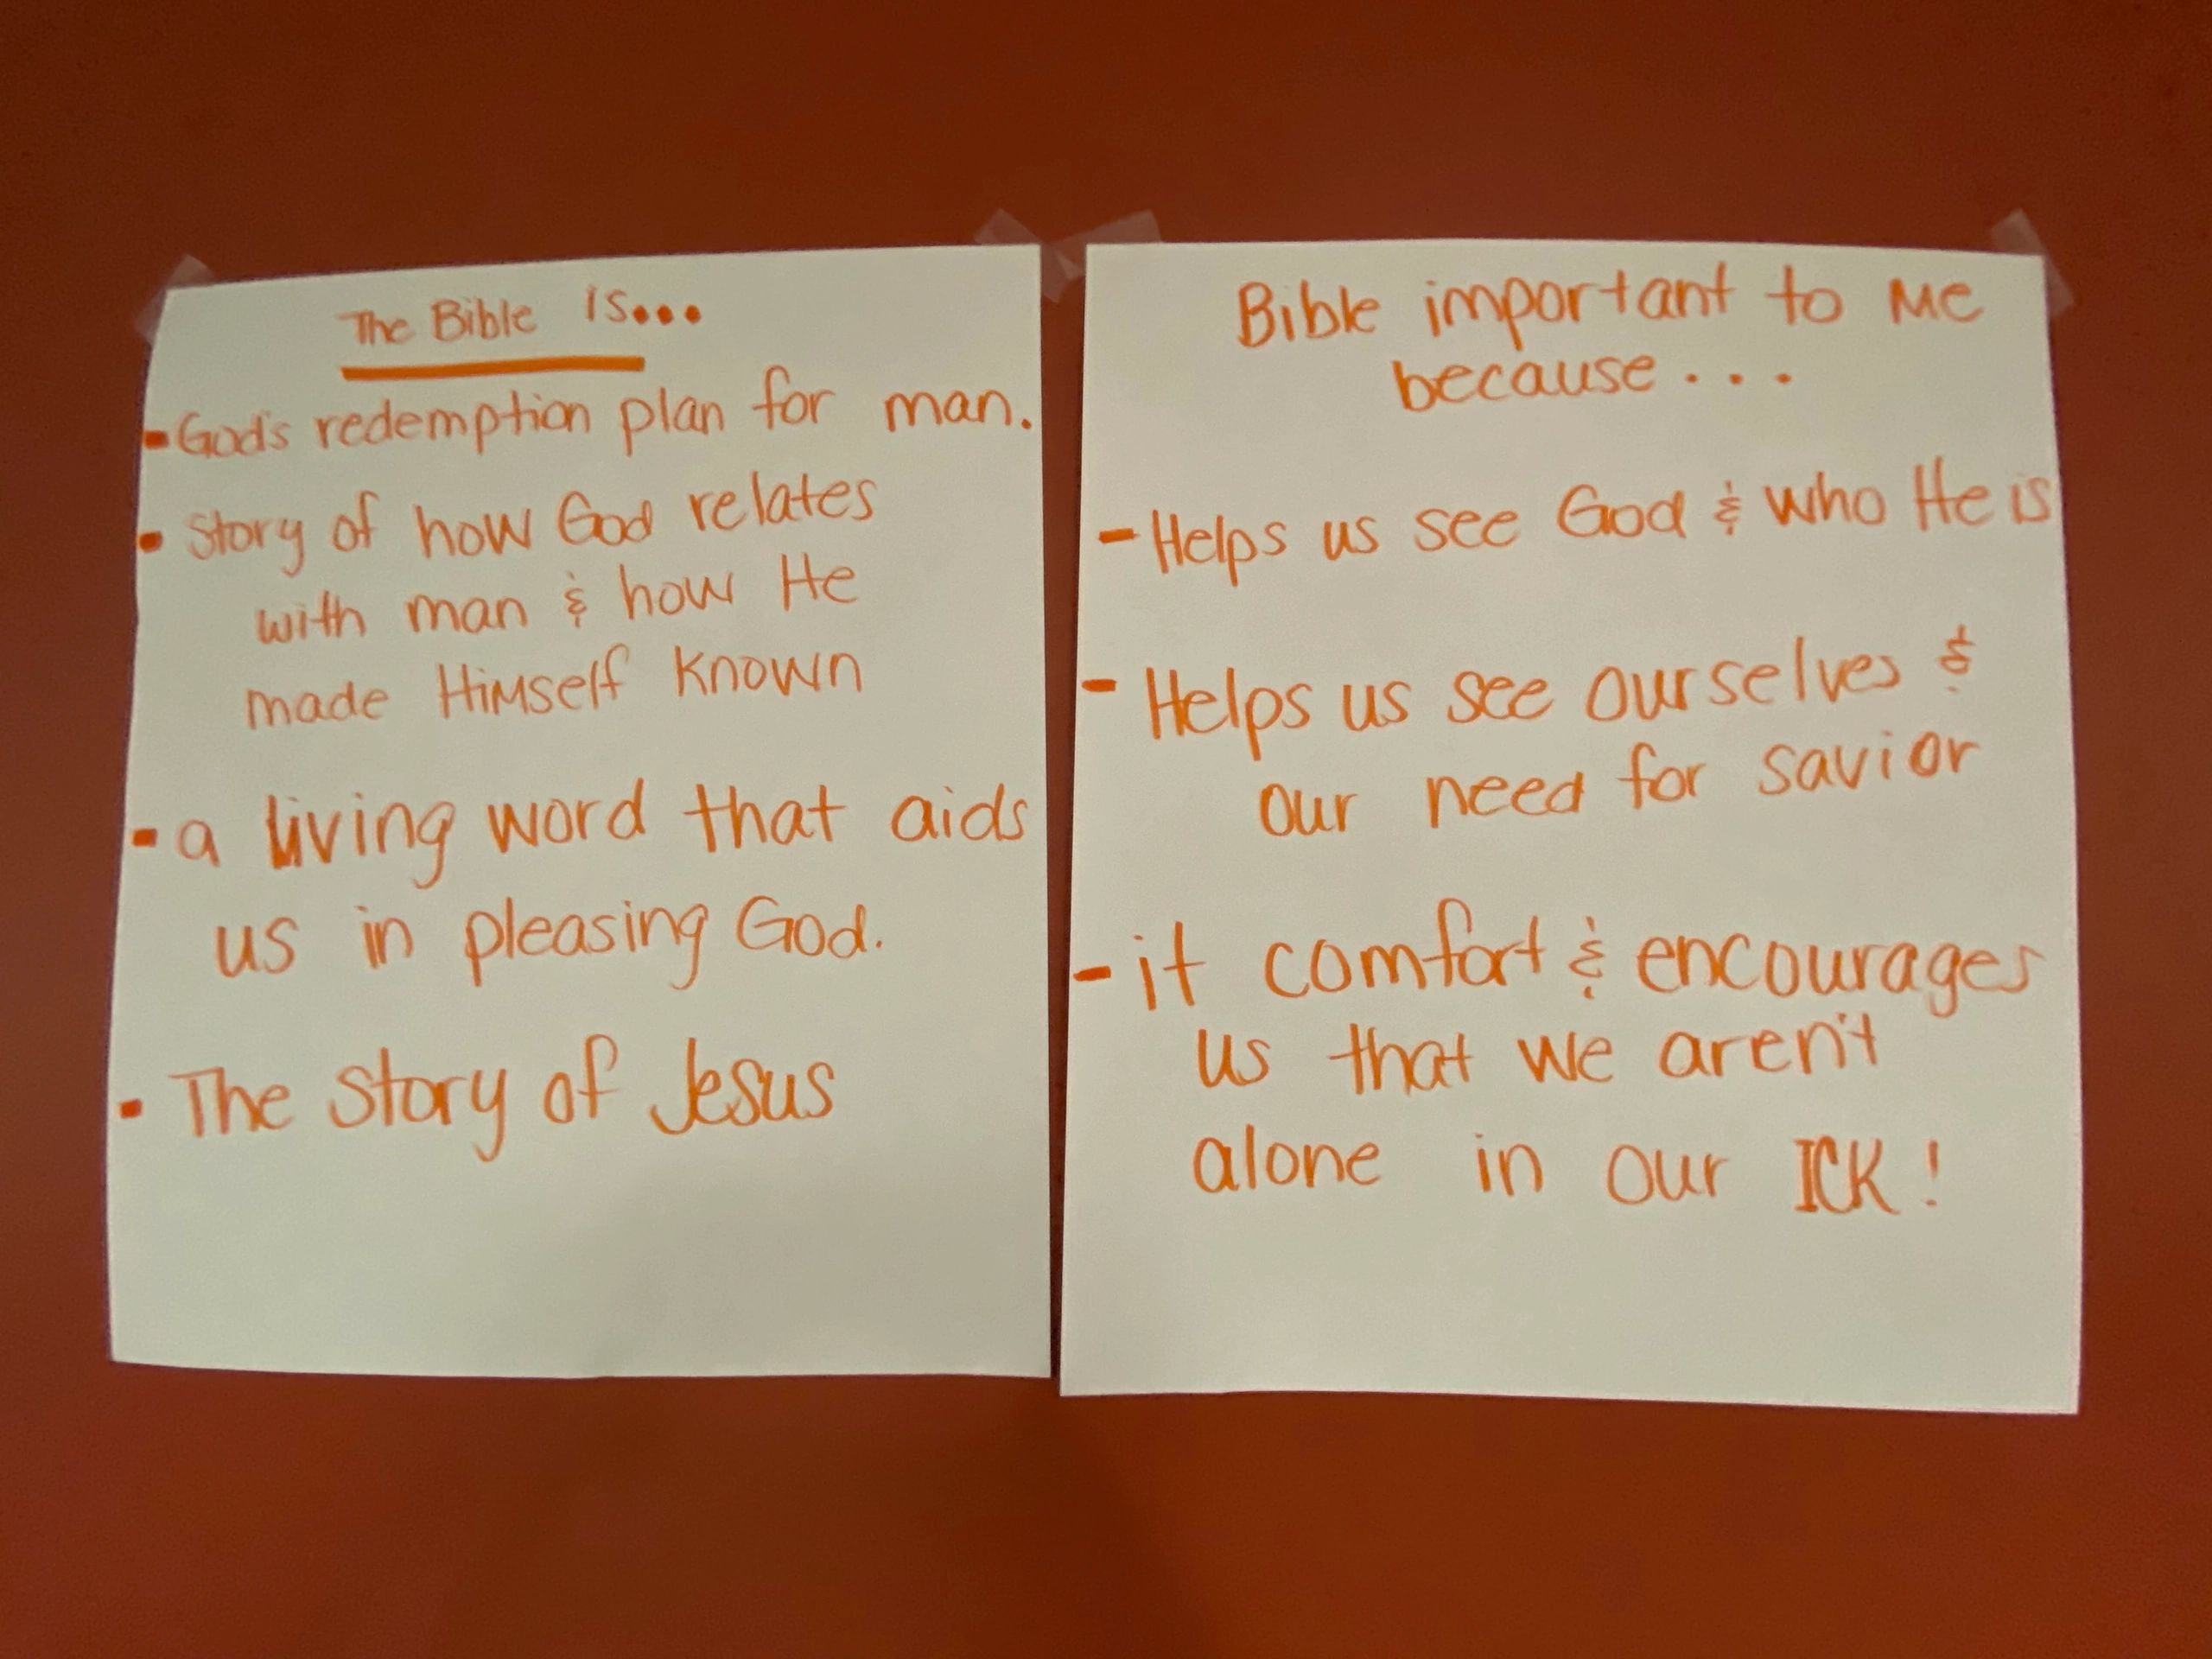 The Bible is...
- God's redemption plan for man.
- Story of how God relates
with man & how He
made Himself known
- a living word that aids
us in pleasing God.
- The story of Jesus
Bible important to me
because...
- Helps us see God & who He is
- Helps us see ourselves &
our need for savior
- it comfort & encourages
us that we aren't
alone in our ICK!